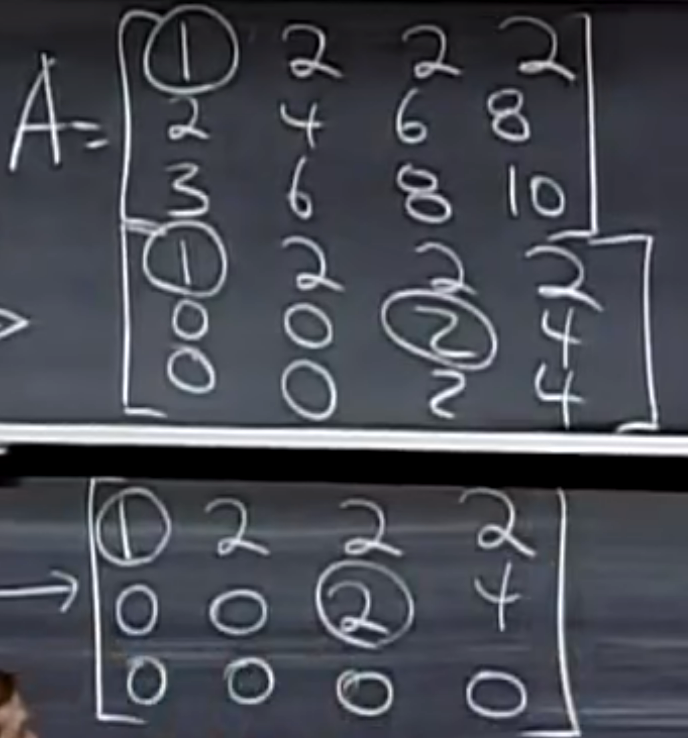 A= 1 2 2 2
2 4 6 8
3 6 8 10
1 2 2 2
0 0 2 4
0 0 2 4
→ 1 2 2 2
0 0 2 4
0 0 0 0